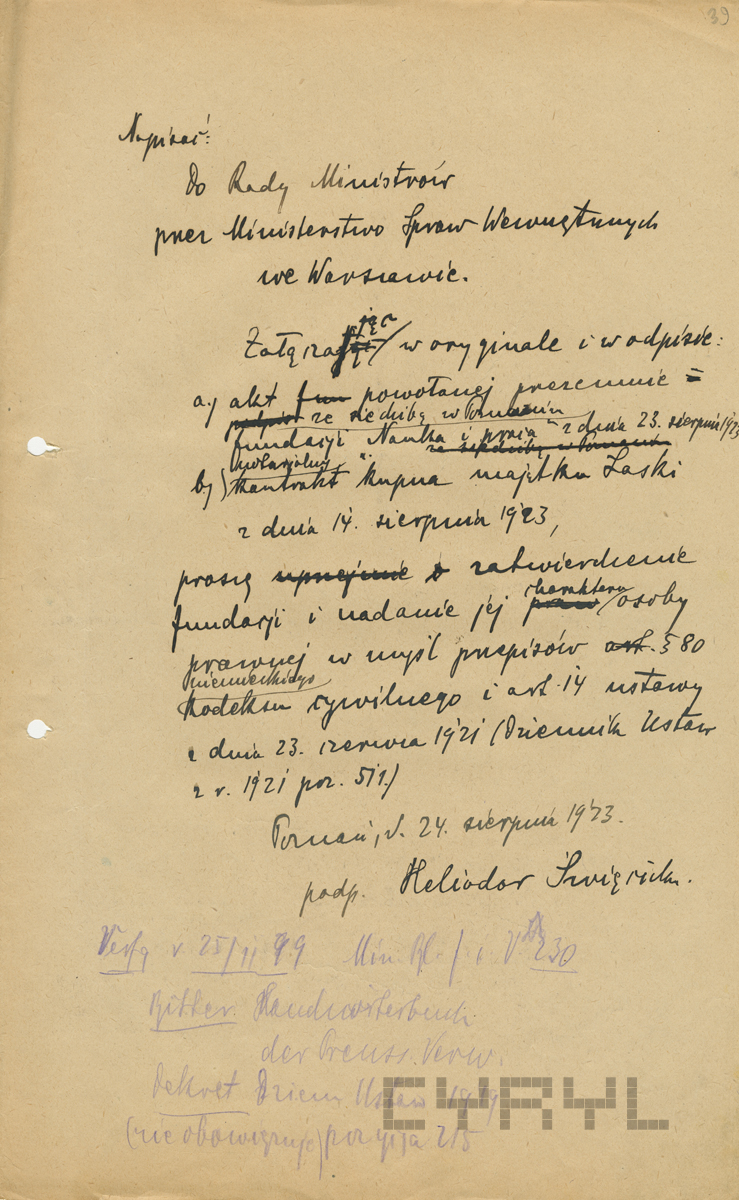 39
Napisać:
Do Rady Ministrów
przez Ministerstwo Spraw Wewnętrznych
we Warszawie.
jąc
Załącza w oryginale i w odpisie:
a.) akt fun powołanej przezemnie =
ze siedzibą w Poznaniu
fundacji Nauka i praca" z dnia 23. sierpnia 1923
ze siedzibą w Poznaniu
notarjalny
b) kontrakt kupna majątku Laski
z dnia 14. sierpnia 1923,
proszę uprzejmie o zatwierdzenie
charakteru
fundacji i nadanie jej praw osoby
prawnej w myśl przepisów art. § 80
niemieckiego
kodeksu cywilnego i art. 14 ustawy
z dnia 23. czerwca 1921 (Dziennik Ustaw
z r. 1921 poz. 511.)
Poznań, d. 24. sierpnia 1923.
podp. Heliodor Święcicki.
Verfg v. 25/11 99 Min. Bl. 230
Bitter. Handwörterbuch
der Preuss. Verw.
Dekret Dzien Ustaw 1919
(nie obowiązuje) pozycja 215
CYRYL